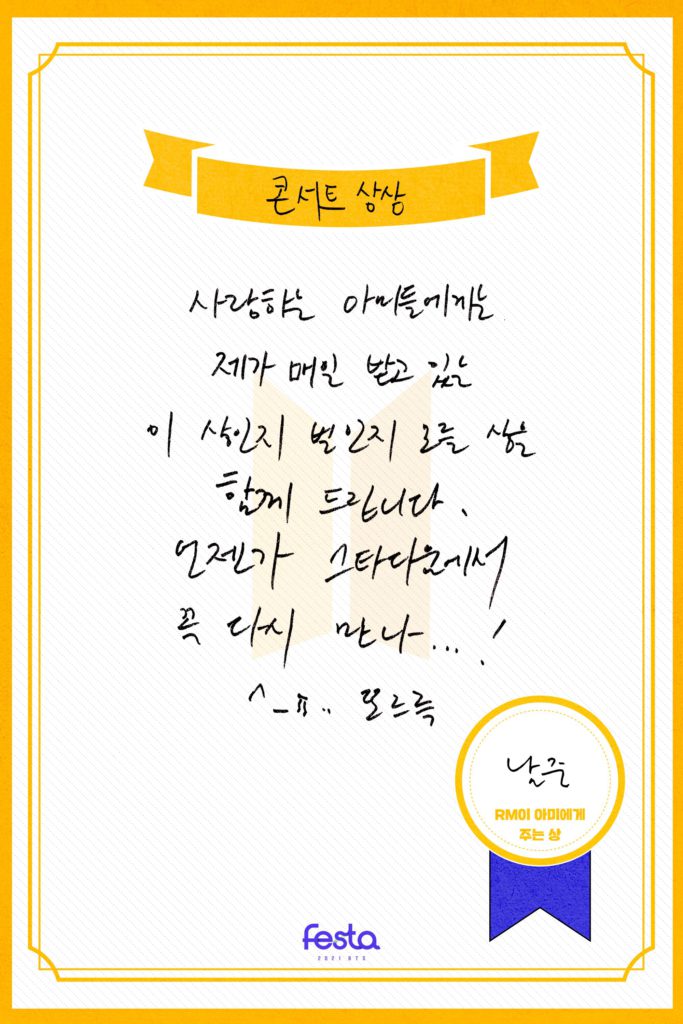 콘서트 상상
사랑하는 아미들에게는
제가 매일 받고 있는
이 상인지 벌인지 모를 상을
함께 드립니다.
언젠가 스타디움에서
꼭 다시 만나...!
^_ㅠ.. 또르륵
남준
RM이 아미에게
주는 상
festa
2021 BTS